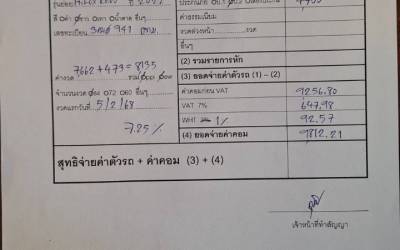 สี ○ดำ ○ขาว ○เทา ○น้ำตาล อื่นๆ
เลขทะเบียน 941 กทม.
ค่าธรรมเนียม
งวดล่วงหน้า งวด
อื่นๆ
(2) รวมรายการหัก
7662 + 473 = 8135
ค่างวด
(3) ยอดจ่ายค่าตัวรถ (1) – (2)
จำนวนงวด ○72 ○60 อื่นๆ
ค่าคอมก่อน VAT 9256.80
งวดแรกวันที่ 5/2/68
VAT 7% 647.98
7.25%
WHT 1% 92.57
(4) ยอดจ่ายค่าคอม 9812.21
สุทธิจ่ายค่าตัวรถ + ค่าคอม (3) + (4)
เจ้าหน้าที่ทำสัญญา